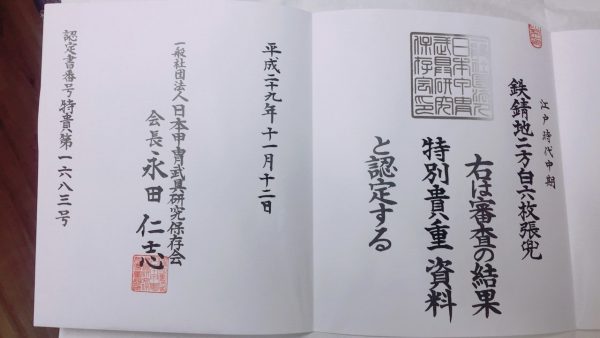 江戸時代中期
鉄錆地二方白六枚張兜
右は審査の結果
特別貴重資料
と認定する
平成二十九年十一月十二日
一般社団法人日本甲冑武具研究保存会
会長 永田仁志
認定書番号特貴第一六八三号